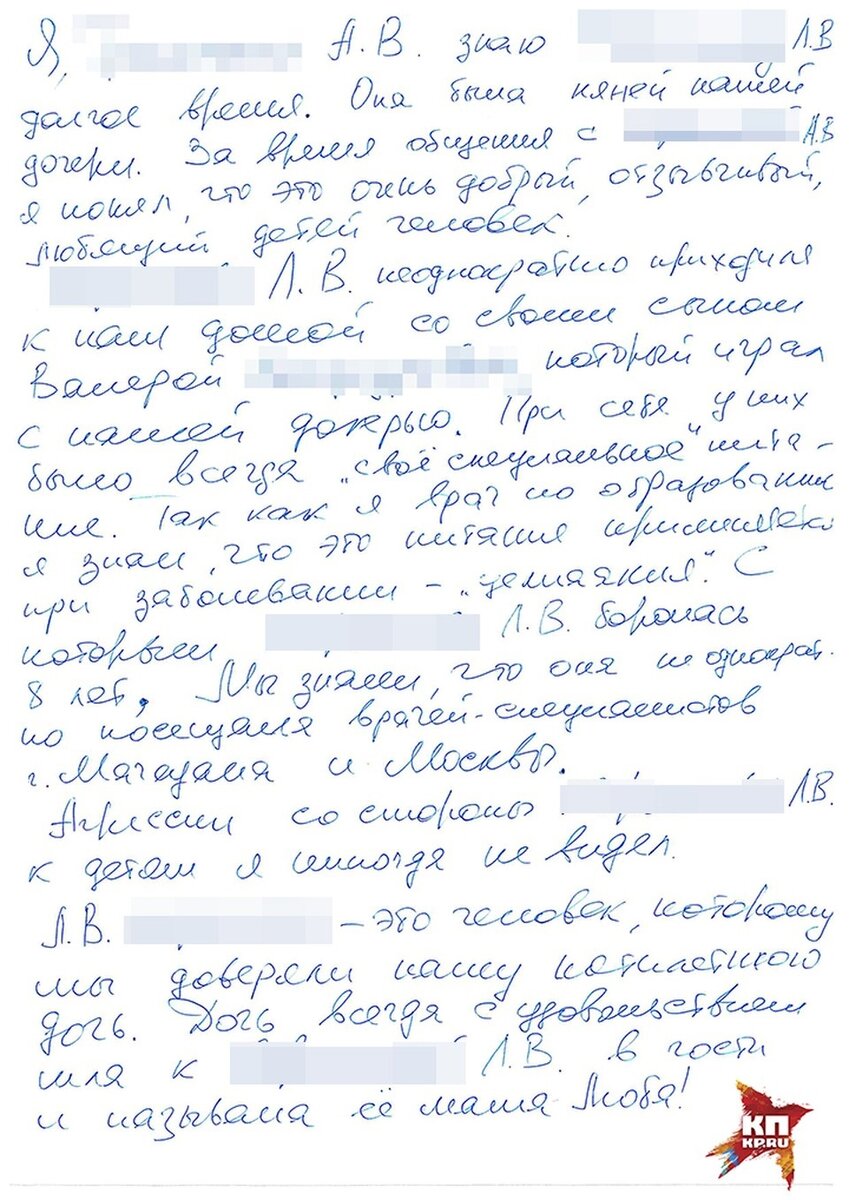 Я, А.В. знаю Л.В
долгое время. Она была няней нашей
дочери. За время общения с Л.В
я понял, что это очень добрый, отзывчивый,
любящий детей человек.
Л.В. неоднократно приходила
к нам домой со своим сыном
Валерой который играл
с нашей дочерью. При себе у них
было всегда "своё специальное" пита-
ние. Так как я врач по образованию
я знаю, что это питание
при заболевании - "целиакия". С
которым Л.В. боролась
8 лет. Мы знали, что она неоднократ-
но посещала врачей-специалистов
г. Магадана и Москвы.
Агрессии со стороны Л.В.
к детям я никогда не видел.
Л.В. - это человек, которому
мы доверяли нашу пятилетнюю
дочь. Дочь всегда с удовольствием
шла к Л.В. в гости
и называла её мама Люба!
КП
KP.RU